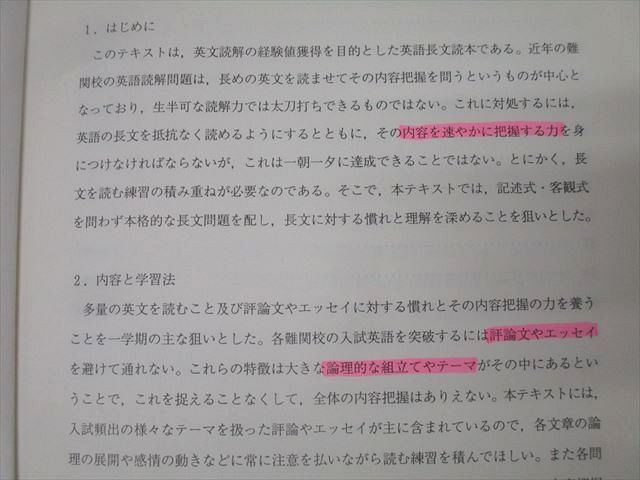 1．はじめに
このテキストは，英文読解の経験値獲得を目的とした英語長文読本である。近年の難
関校の英語読解問題は，長めの英文を読ませてその内容把握を問うというものが中心と
なっており，生半可な読解力では太刀打ちできるものではない。これに対処するには，
英語の長文を抵抗なく読めるようにするとともに，その内容を速やかに把握する力を身
につけなければならないが，これは一朝一夕に達成できることではない。とにかく，長
文を読む練習の積み重ねが必要なのである。そこで，本テキストでは，記述式・客観式
を問わず本格的な長文問題を配し，長文に対する慣れと理解を深めることを狙いとした。
2．内容と学習法
多量の英文を読むこと及び評論文やエッセイに対する慣れとその内容把握の力を養う
ことを一学期の主な狙いとした。各難関校の入試英語を突破するには評論文やエッセイ
を避けて通れない。これらの特徴は大きな論理的な組立てやテーマがその中にあるとい
うことで，これを捉えることなくして，全体の内容把握はありえない。本テキストには，
入試頻出の様々なテーマを扱った評論やエッセイが主に含まれているので，各文章の論
理の展開や感情の動きなどに常に注意を払いながら読む練習を積んでほしい。また各問